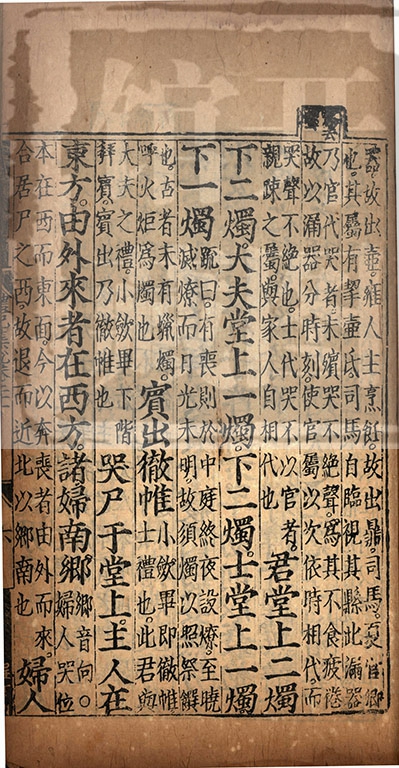 器故出壺。雍人主烹飪。故出鼎。司馬夏官卿
也。其屬有挈壺氏。司馬自臨視其縣此漏器
乃官代哭者。未殯哭不絕聲。爲其不食疲倦
故以漏器分時刻。使官屬以次依時相代。而
哭聲不絕也。士代哭不以官者。
親疎之屬與家人自相代也
君堂上二燭
下二燭。大夫堂上一燭。下二燭。士堂上一燭
下一燭
疏曰。有喪則於中庭終夜設燎。至曉
滅燎而日光未明。故須燭以照祭饌
也。古者未有蠟燭。
呼火炬爲燭也
賓出徹帷
小歛畢即徹帷
士禮也。此君與
大夫之禮。小歛畢下階
拜賓。賓出乃徹帷也
哭尸于堂上。主人在
東方。由外來者在西方。諸婦南鄉
鄉音向。
婦人哭位
本在西而東面。今以奔喪者由外而來。
合居尸之西。故退而近北以鄉南也
婦人